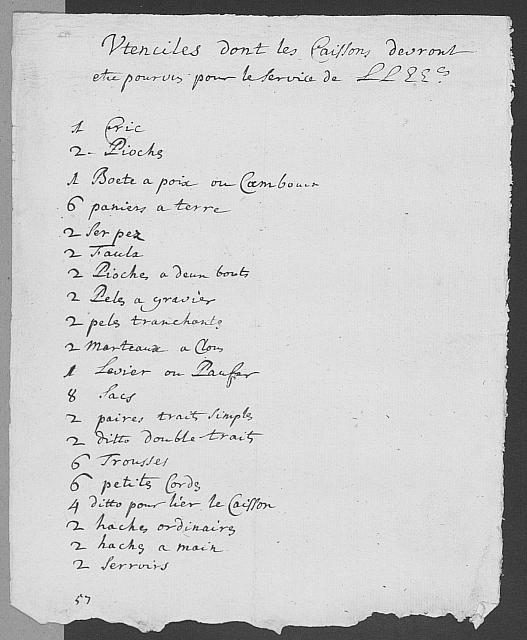 Vtenciles dont les Caissons devront
etre pourvus pour le service de LLEE^s
1 Cric
2 - Pioches
1 Boete a poix ou Cambouin
6 paniers a terre
2 Serpez
2 Faulx
2 Pioches a deux bouts
2 Peles a gravier
2 peles tranchants
2 Marteaux a Clous
1 Levier ou Paufer
8 Sacs
2 paires traits Simples
2 ditto double trait
6 Trousses
6 petits Cordes
4 ditto pour lier le Caisson
2 haches ordinaires
2 haches a main
2 Serroirs
57